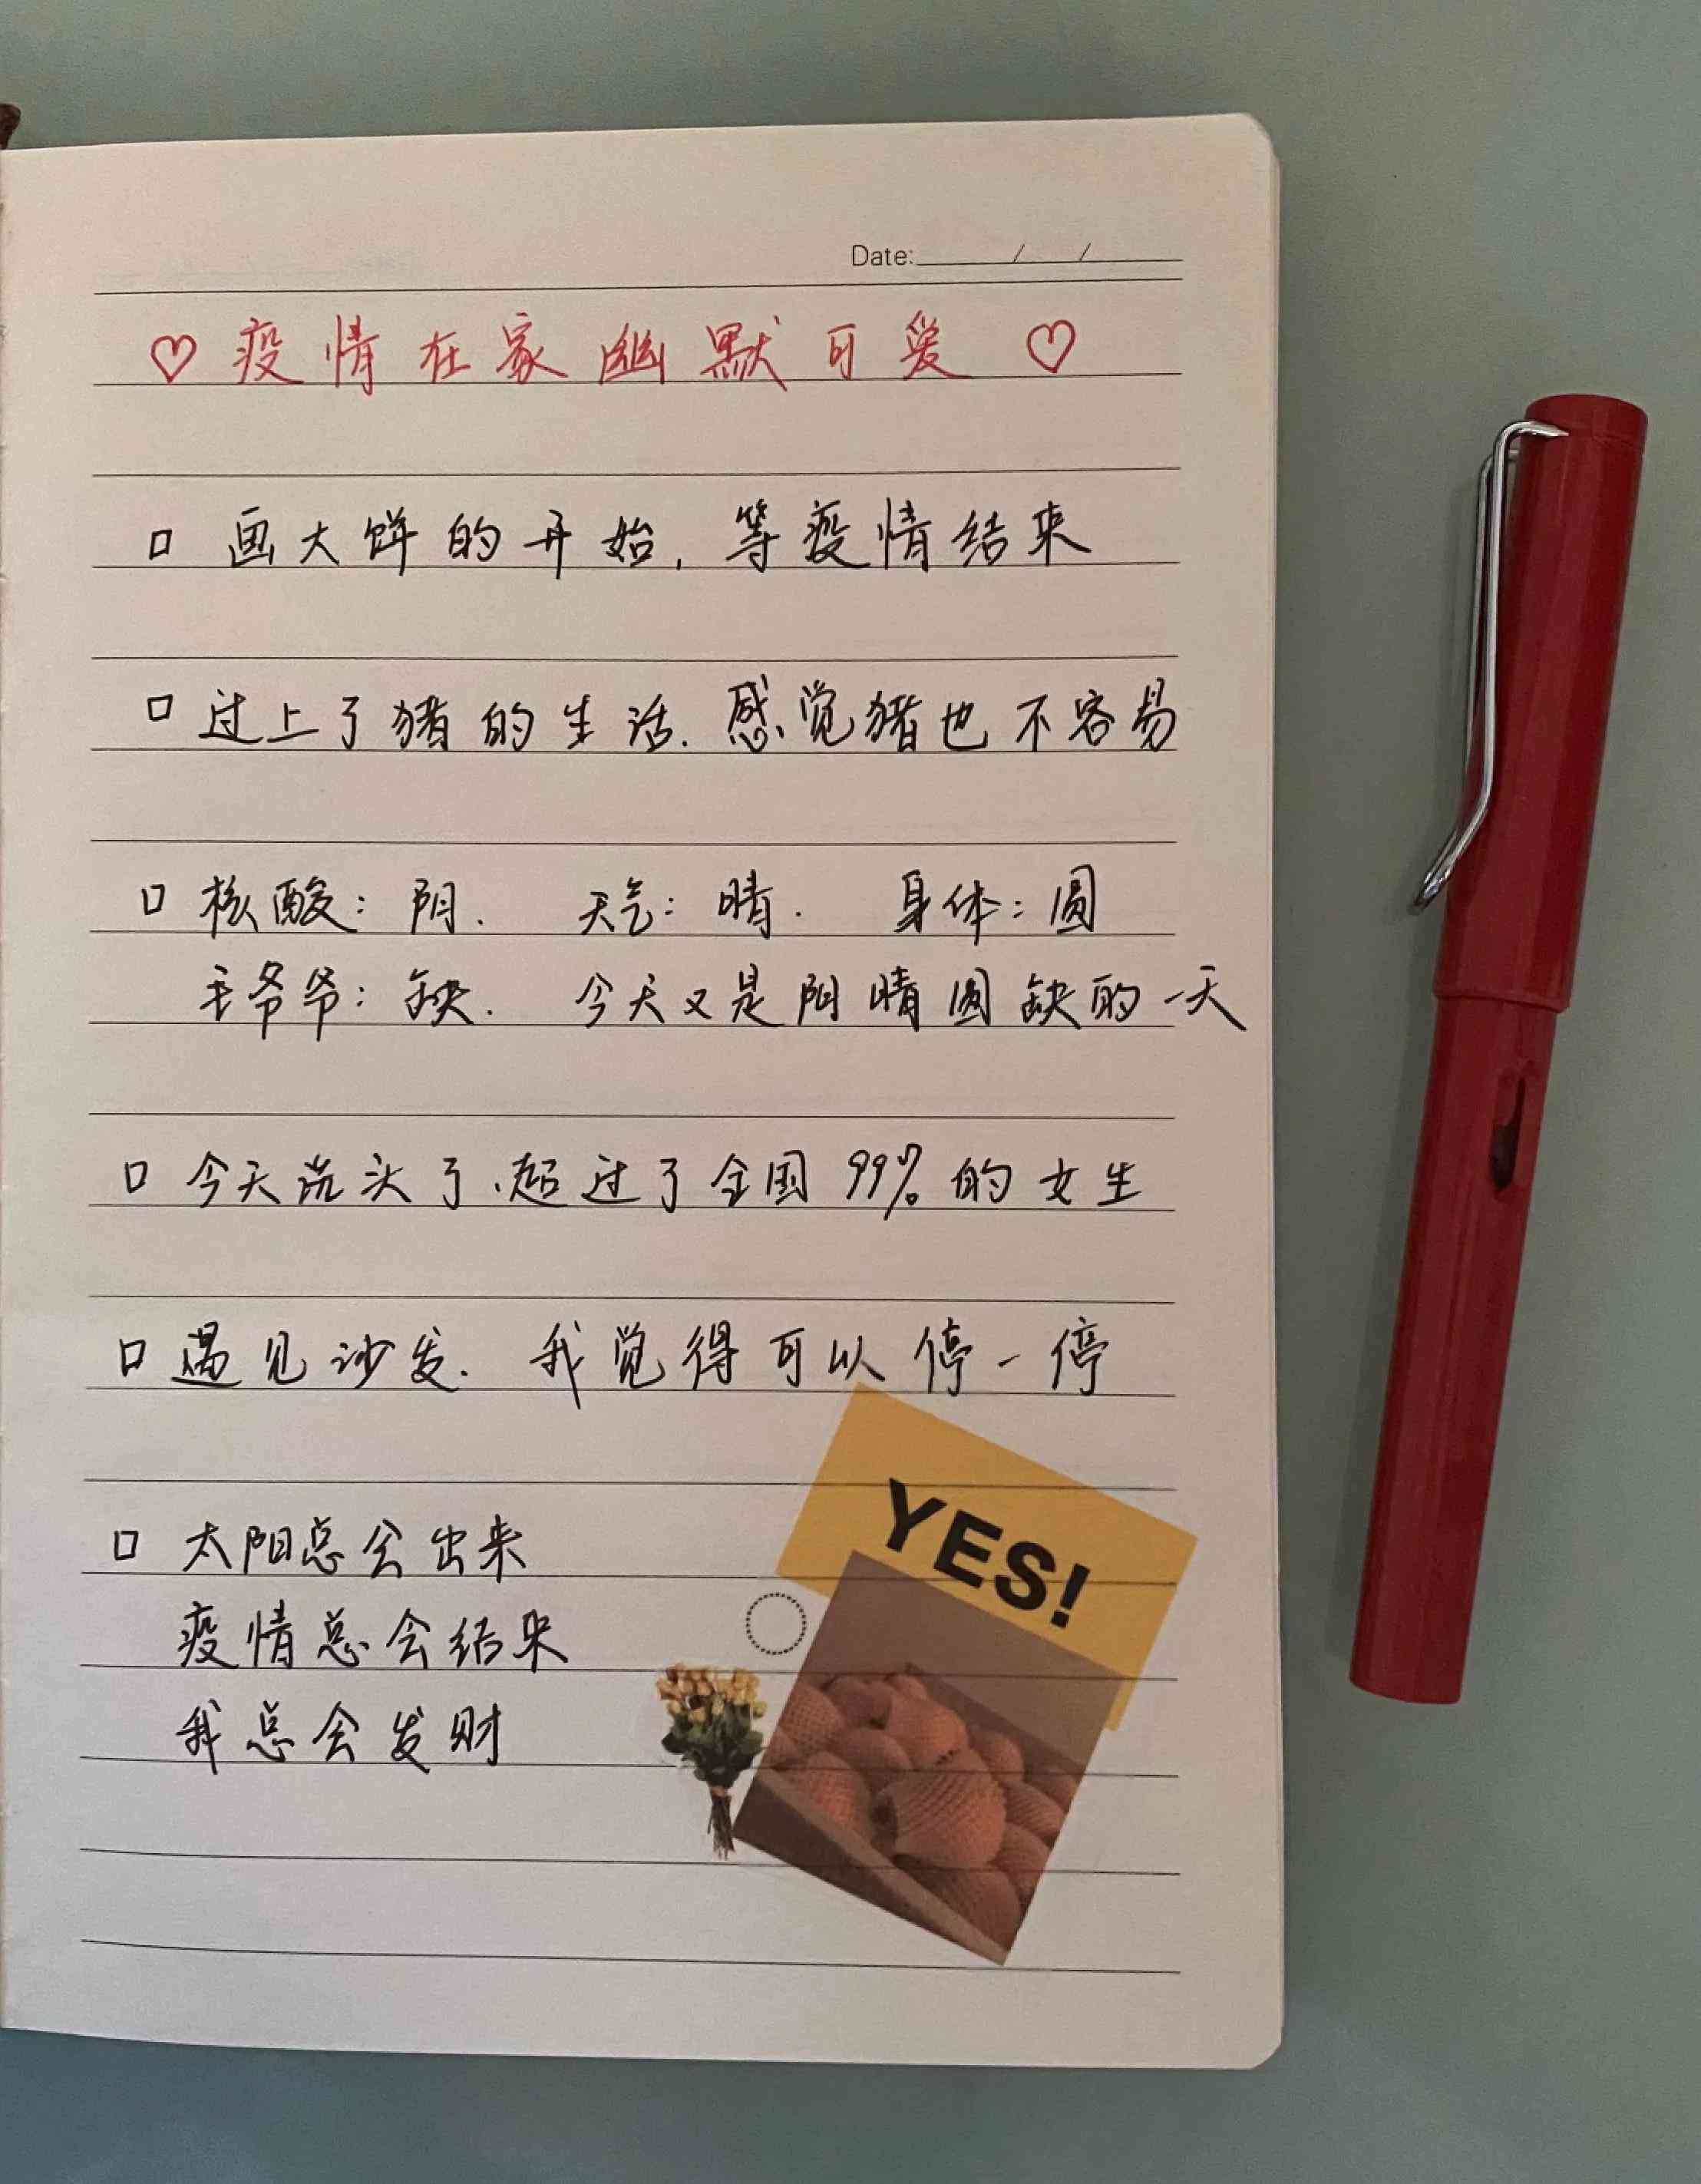 Date: / /
♡ 疫情在家幽默可爱 ♡
□ 画大饼的开始, 等疫情结束
□ 过上了猪的生活. 感觉猪也不容易
□ 核酸: 阴. 天气: 晴. 身体: 圆
毛爷爷: 缺. 今天又是阴晴圆缺的一天
□ 今天洗头了、超过了全国99%的女生
□ 遇见沙发. 我觉得可以停一停
□ 太阳总会出来
疫情总会结束
我总会发财
YES!